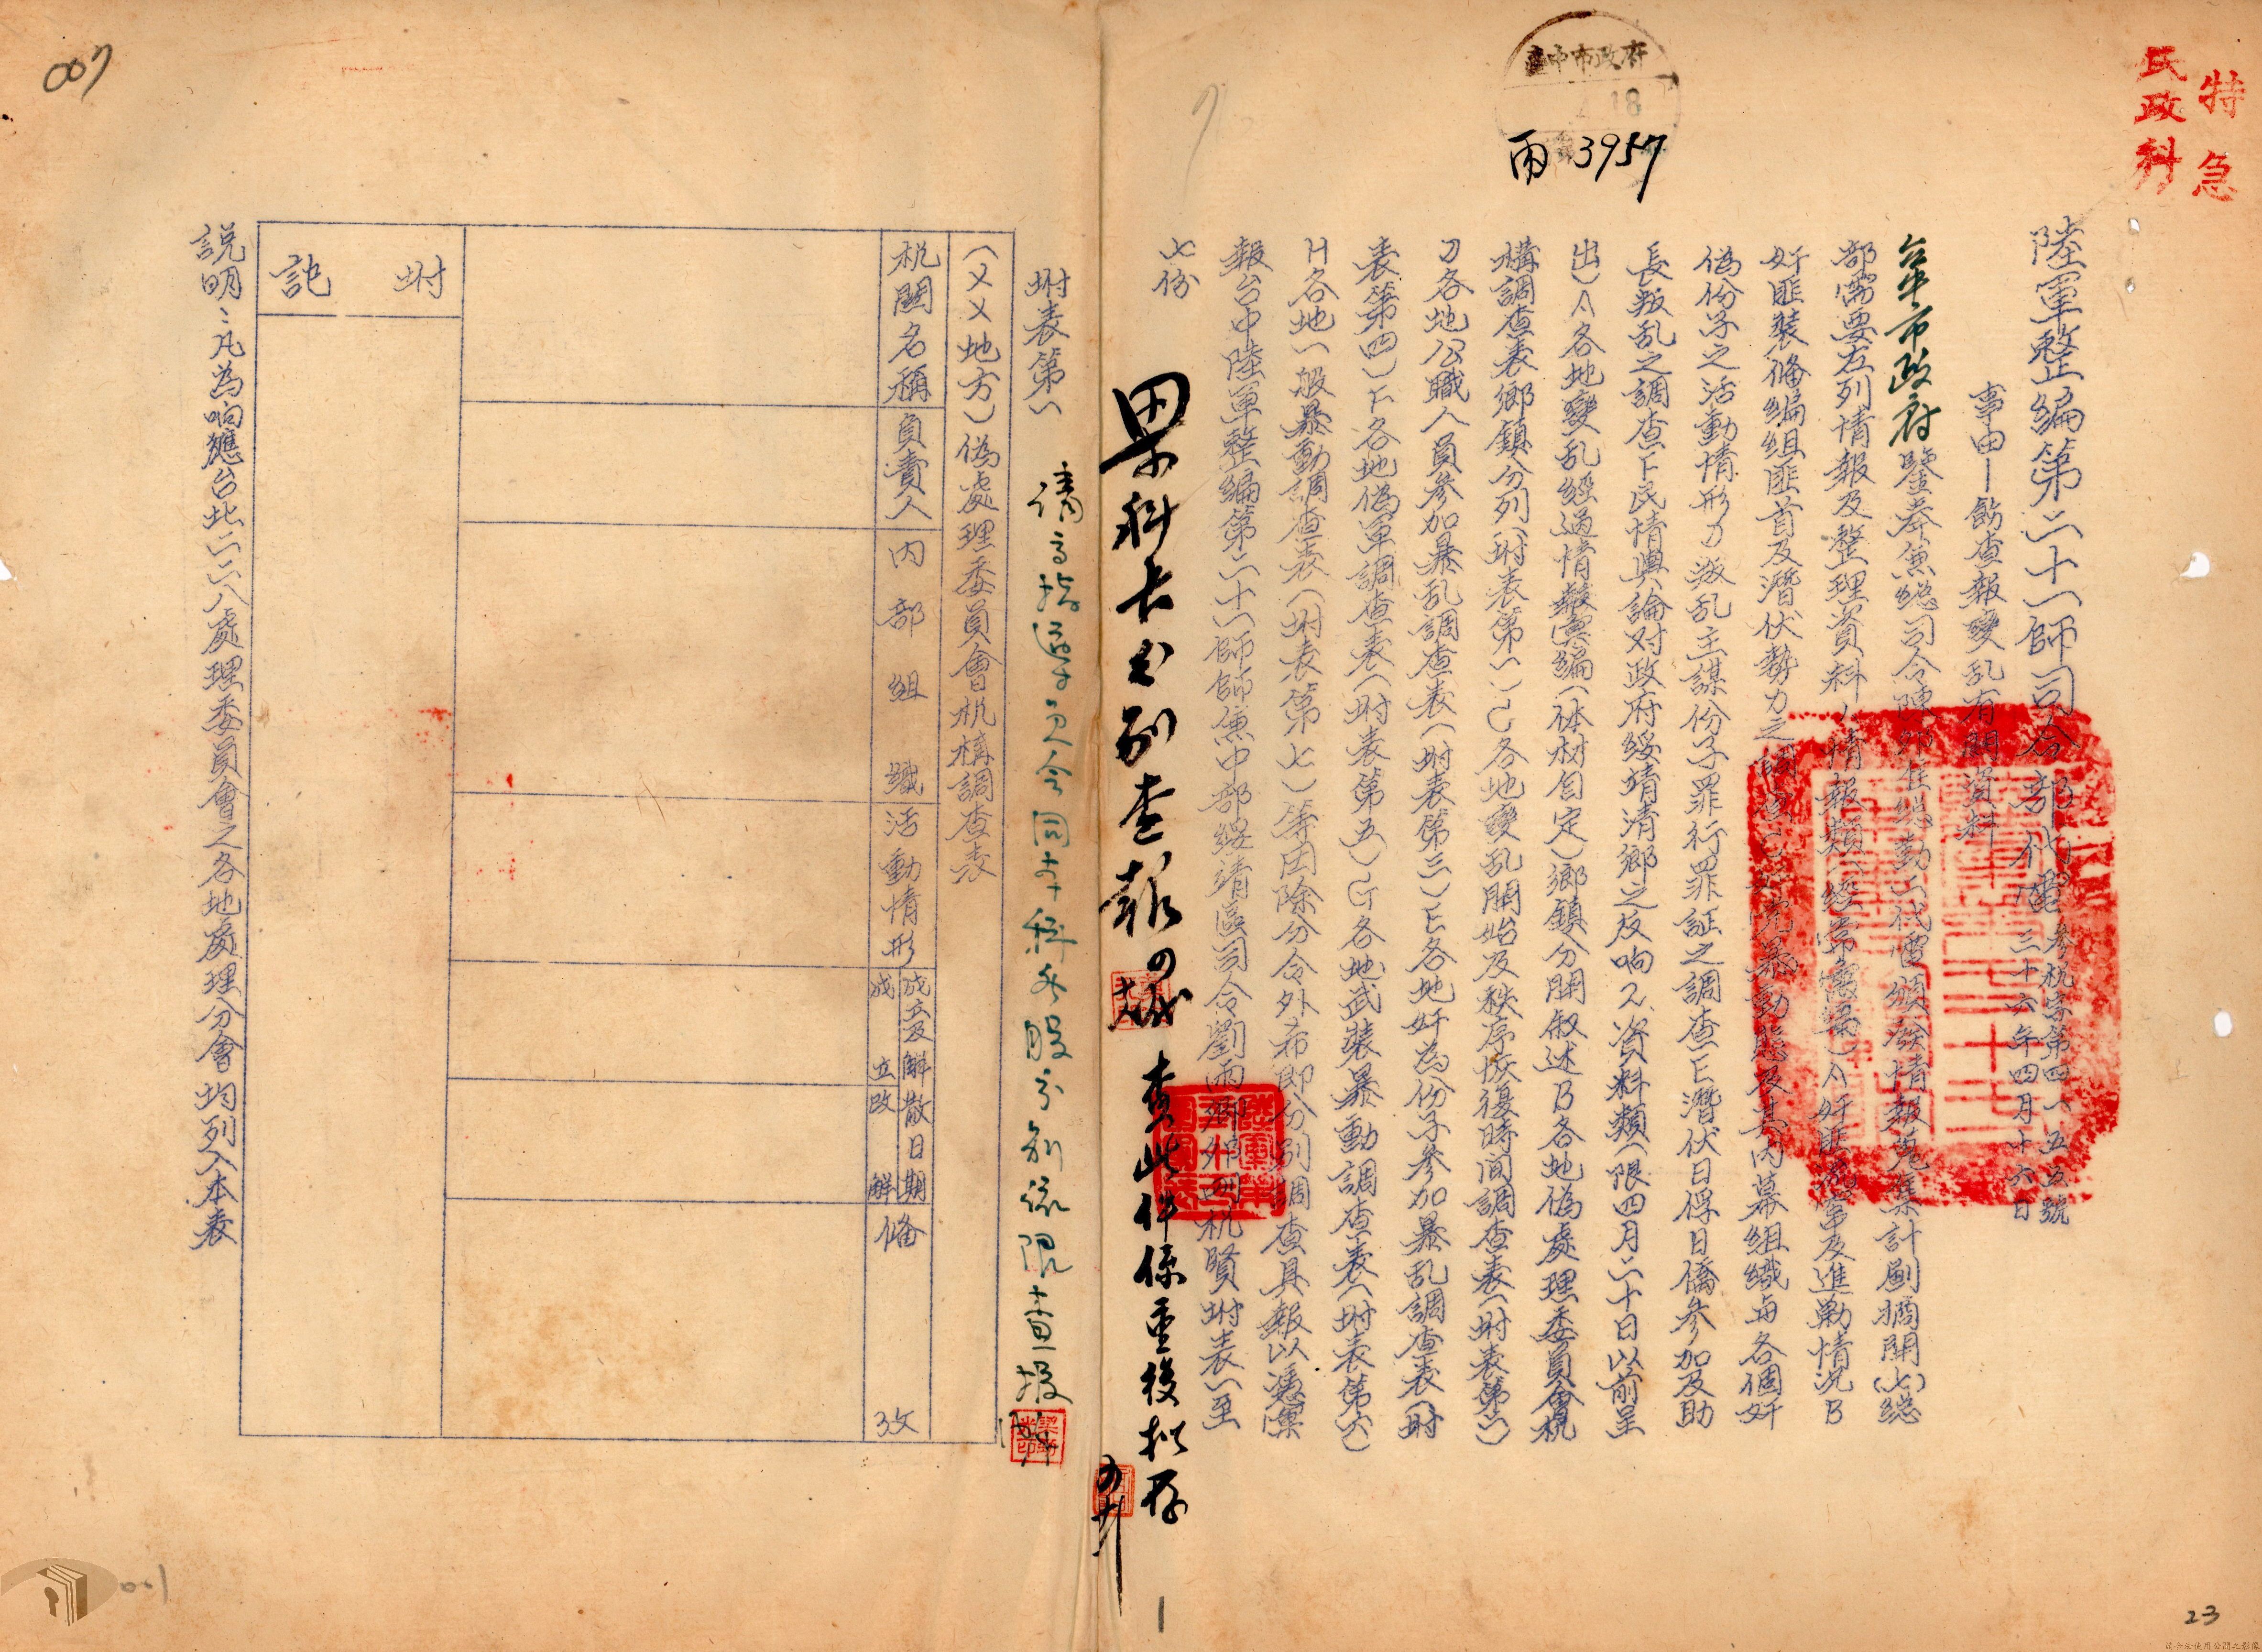 特急
民政科
臺中市政府
4.18
雨 3957
陸軍整編第二十一師司令部代電
參机宗第四一五五號
三十六年四月十六日
事由—飭查報變乱有關資料
台中市政府鑒奉兼總司令陳卯佳總勤二代電頒發情報蒐集計劃摘開(七)總
部需要左列情報及整理資料1.情報類(經常需要)A奸匪流竄及進勦情況B
奸匪裝俻編組匪首及潛伏勢力之調查C奸党暴動態及其內幕組織与各個奸
偽份子之活動情形D叛乱主謀份子罪行罪証之調查E潛伏日俘日僑參加及助
長叛乱之調查F民情輿論对政府綏靖清鄉之反响2.資料類(限四月二十日以前呈
出)A各地變乱經過情報彙編(体材自定)鄉鎮分開叙述B各地偽處理委員會机
構調查表鄉鎮分列(坿表第一)C各地變乱開始及秩序恢復時间調查表(坿表第二)
D各地公職人員參加暴乱調查表(坿表第三)E各地奸為份子參加暴乱調查表(坿
表第四)F各地偽軍調查表(坿表第五)G各地武裝暴動調查表(坿表第六)
H各地一般暴動調查表(坿表第七)等因除分令外希即分別調查具報以憑彙
報台中陸軍整編第二十一師師長兼中部綏靖區司令劉雨卿卯 机賢坿表一至
七份
科長分別查報
查此件係重複擬存
坿表第一
(××地方)偽處理委員會机構調查表
机關名稱
負責人
內部組織
活動情形
成立及解散日期
成立
改解
俻攷
坿記
説明:凡為响應台北二二八處理委員會之各地處理分會均列入本表
007
001
23
請合法使用公開之影像